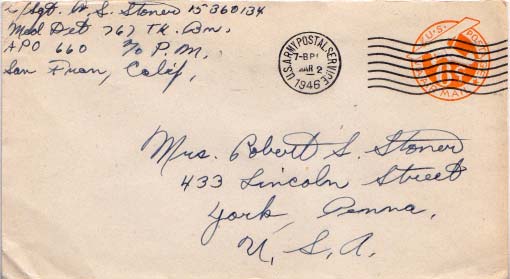 Sgt. W. S. Stoner 15360134
Med Det 767 Tk. Bn.
APO 660 c/o P.M.
San Fran, Calif.
U.S. ARMY POSTAL SERVICE
MAR 2
1946
U.S. POSTAGE
AIR MAIL
Mrs. Robert S. Stoner
433 Lincoln Street
York, Penna.
U. S. A.